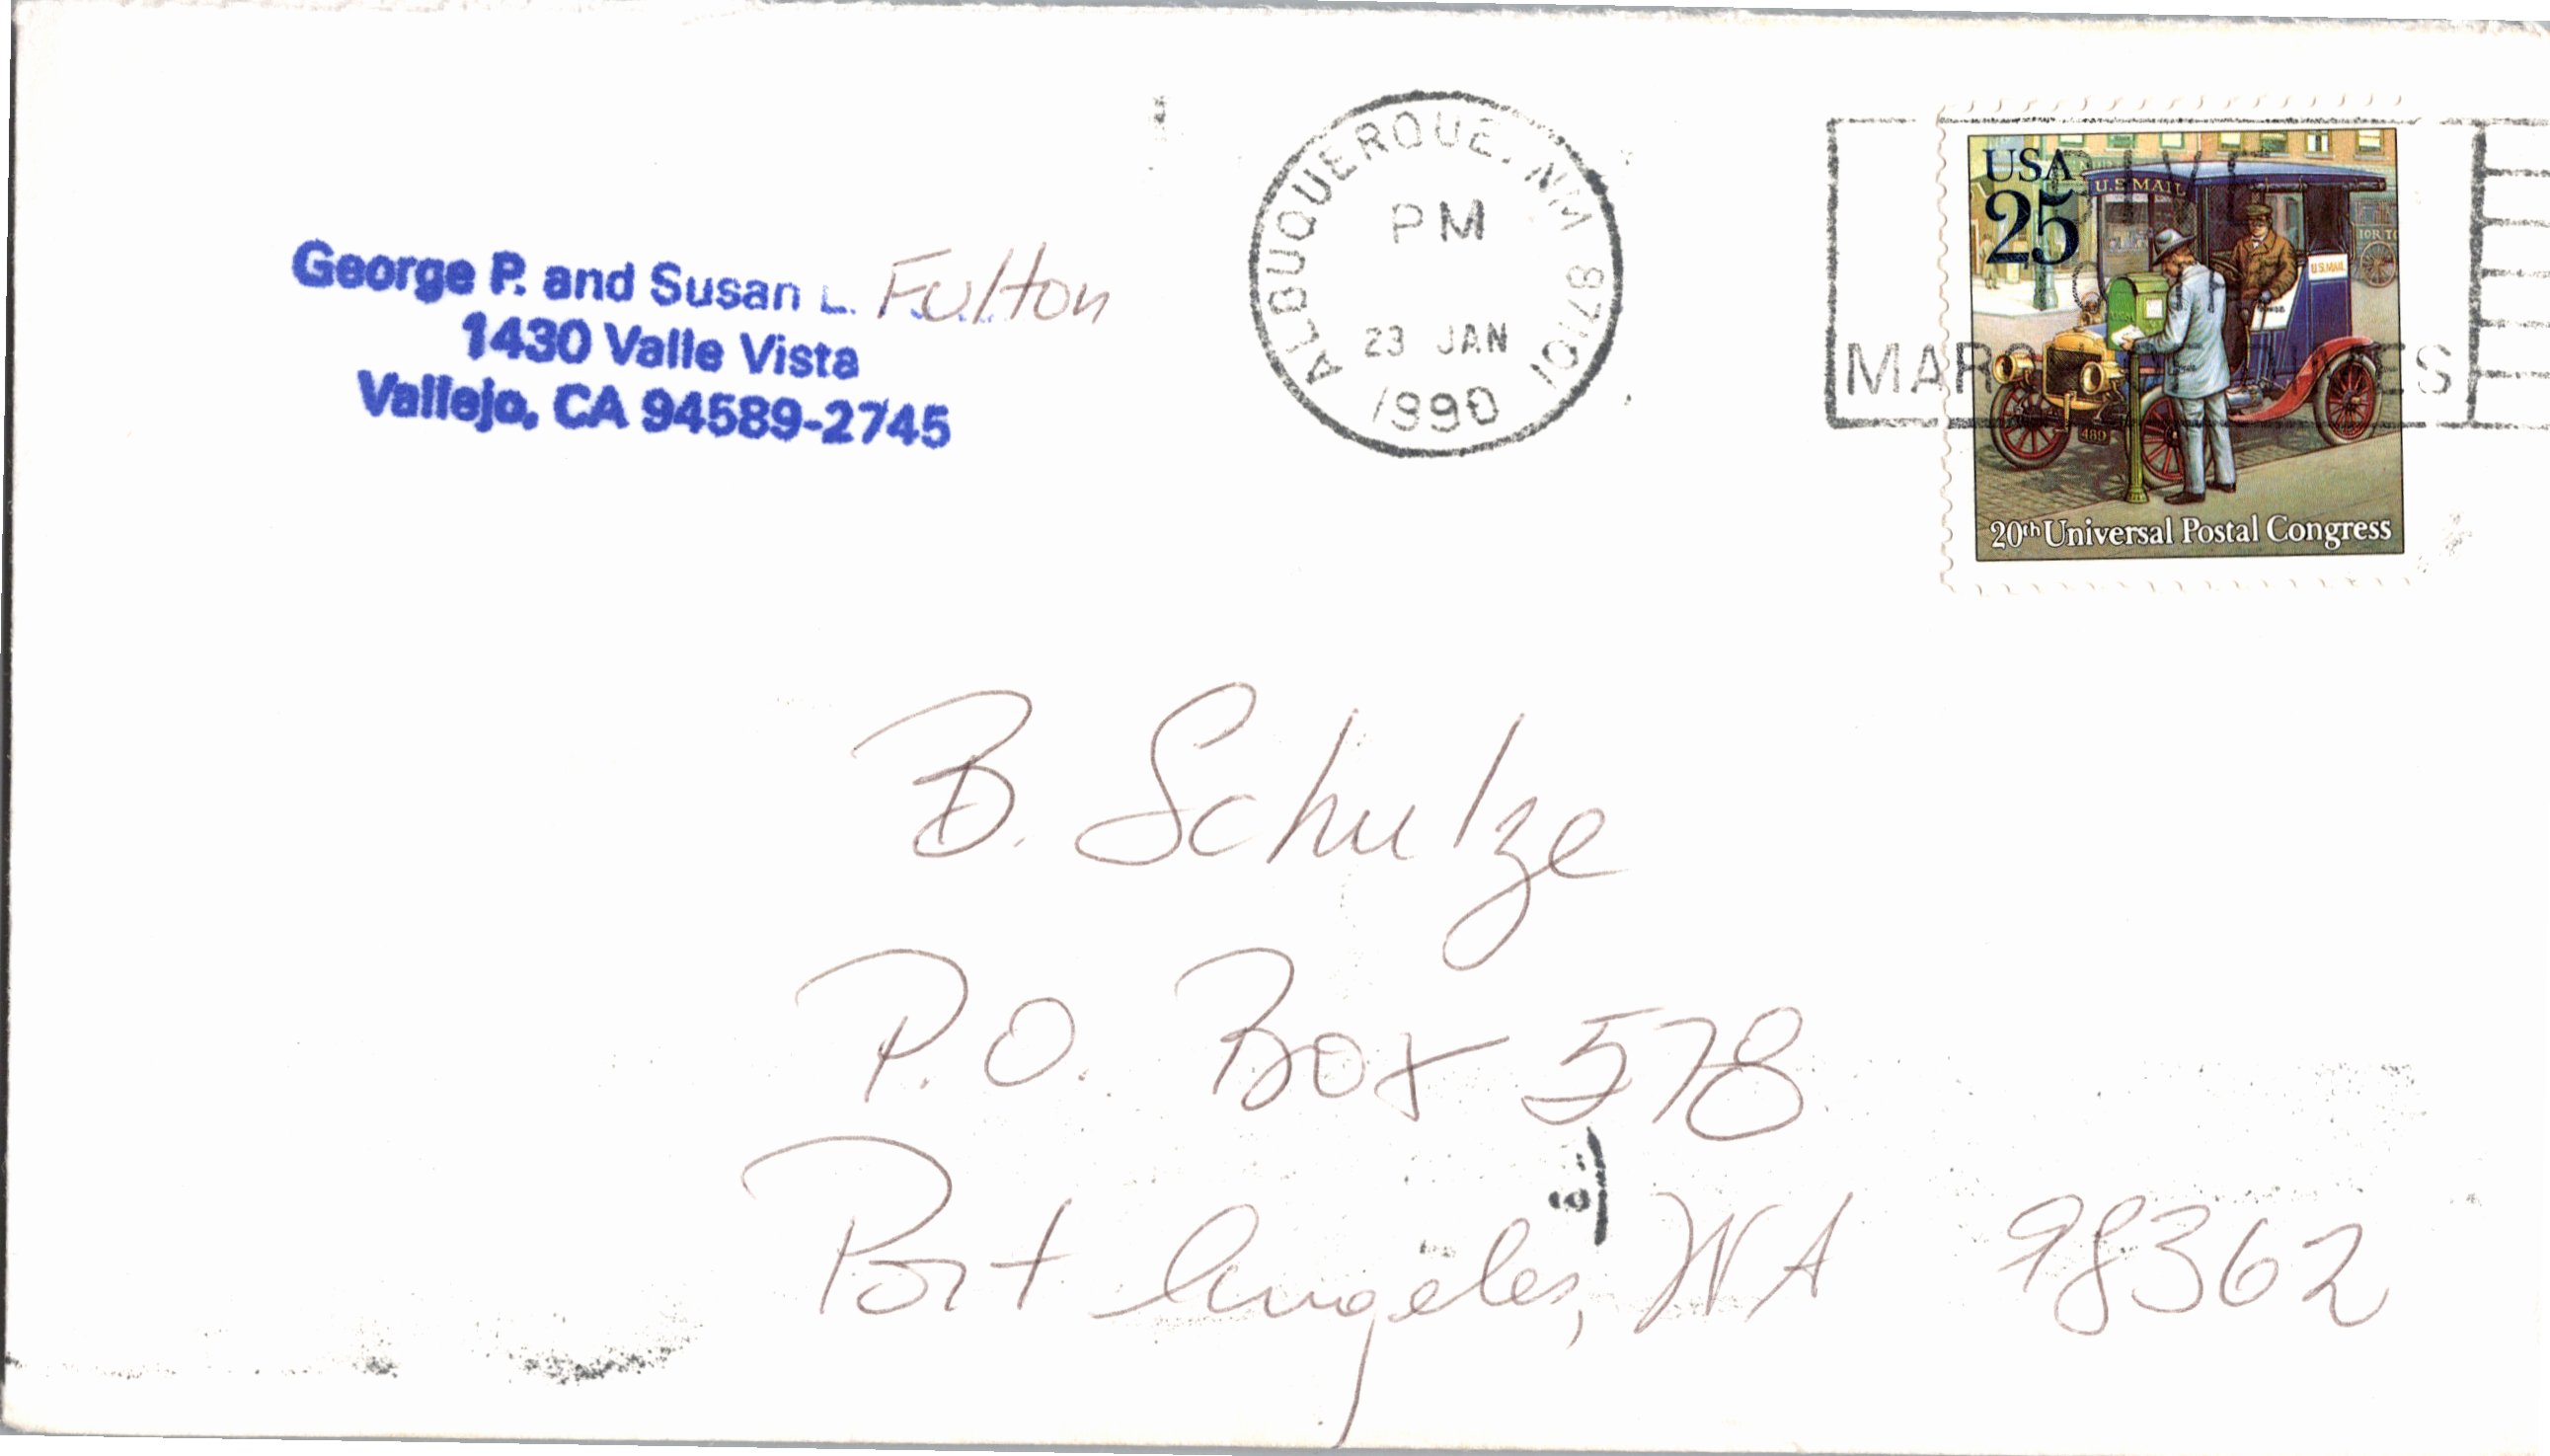 George P. and Susan L. Fulton
1430 Valle Vista
Vallejo, CA 94589-2745
ALBUQUERQUE, NM 87101
PM
23 JAN
1990
USA
25
U.S. MAIL
U.S. MAIL
489
20th Universal Postal Congress
B. Schulze
P.O. Box 578
Port Angeles, WA 98362